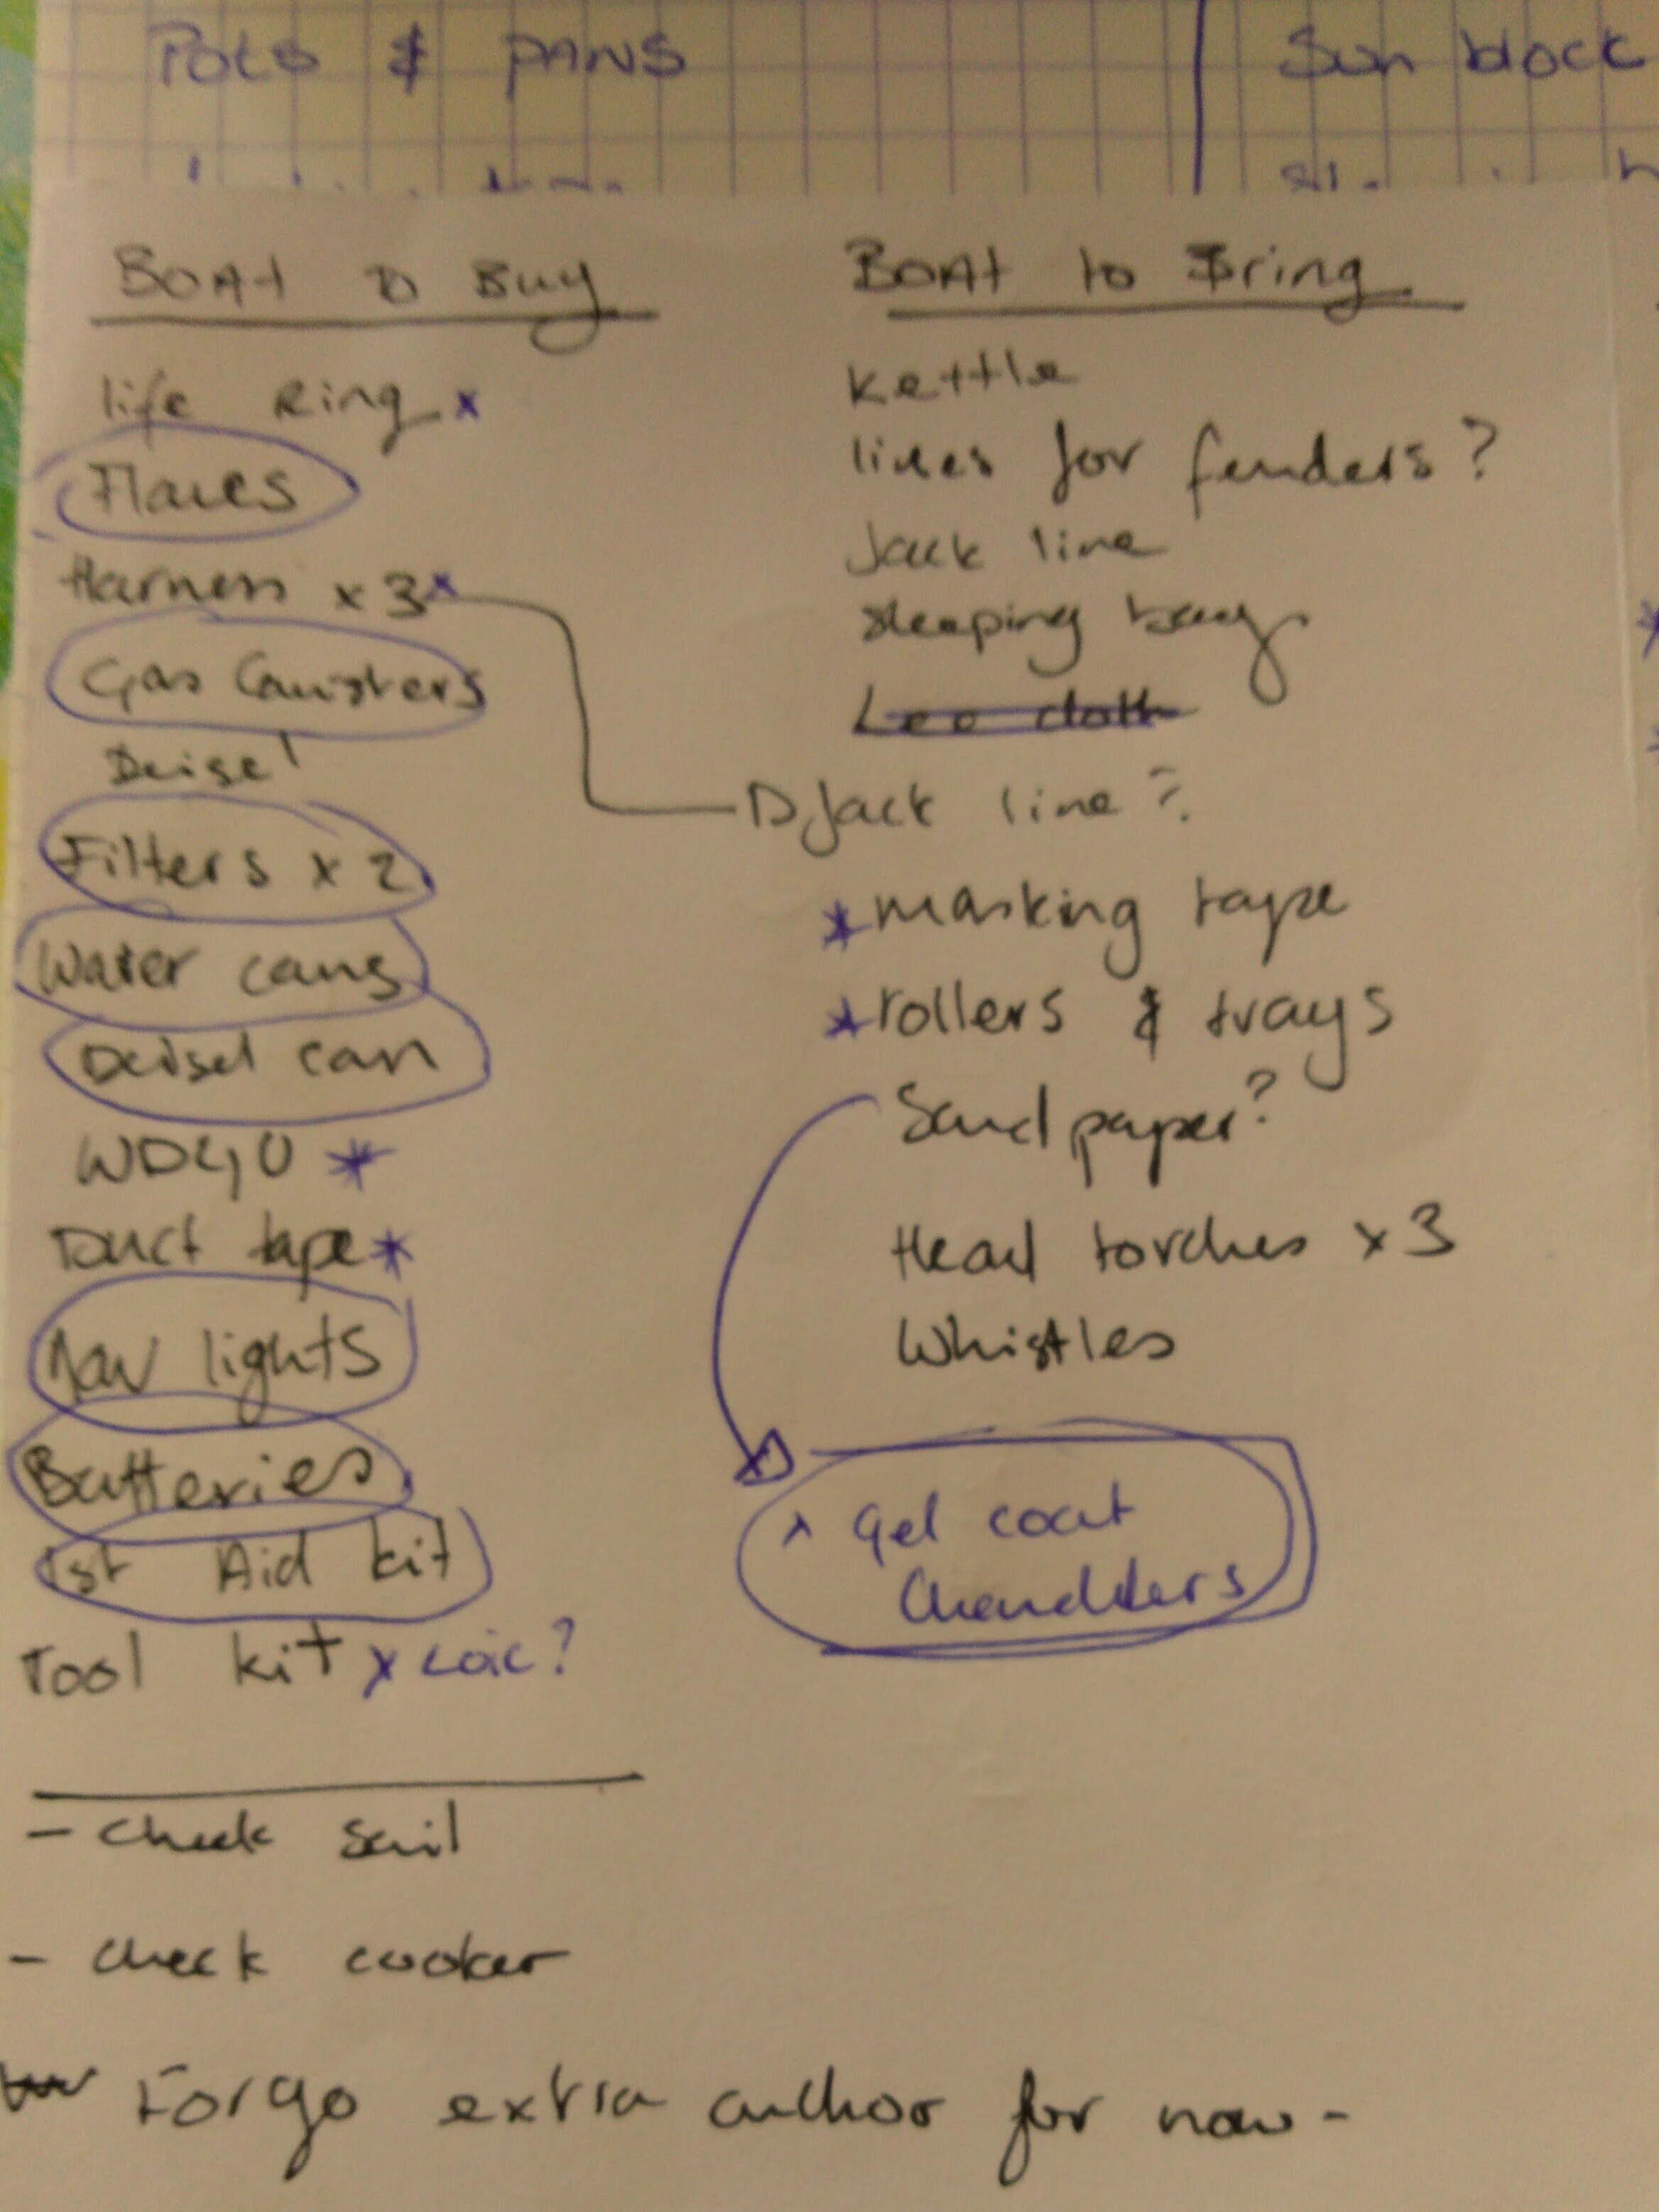 Pots & PANS
Sun block
BOAt to Buy
life Ring x
Flares
Harness x 3 x
Gas Canisters
Deisel
Filters x 2
Water cans
Deisel can
WD40 *
Duct tape *
Nav lights
Batteries
1st Aid kit
Tool kit x Loic?
- check sail
- check cooker
Forgo extra anchor for now -
BOAt to Bring
Kettle
lines for fenders?
Jack line
sleeping bag
Lee cloth
Jack line?
* masking tape
* rollers & trays
Sand paper?
Head torches x 3
Whistles
x gel coat
Chandlers